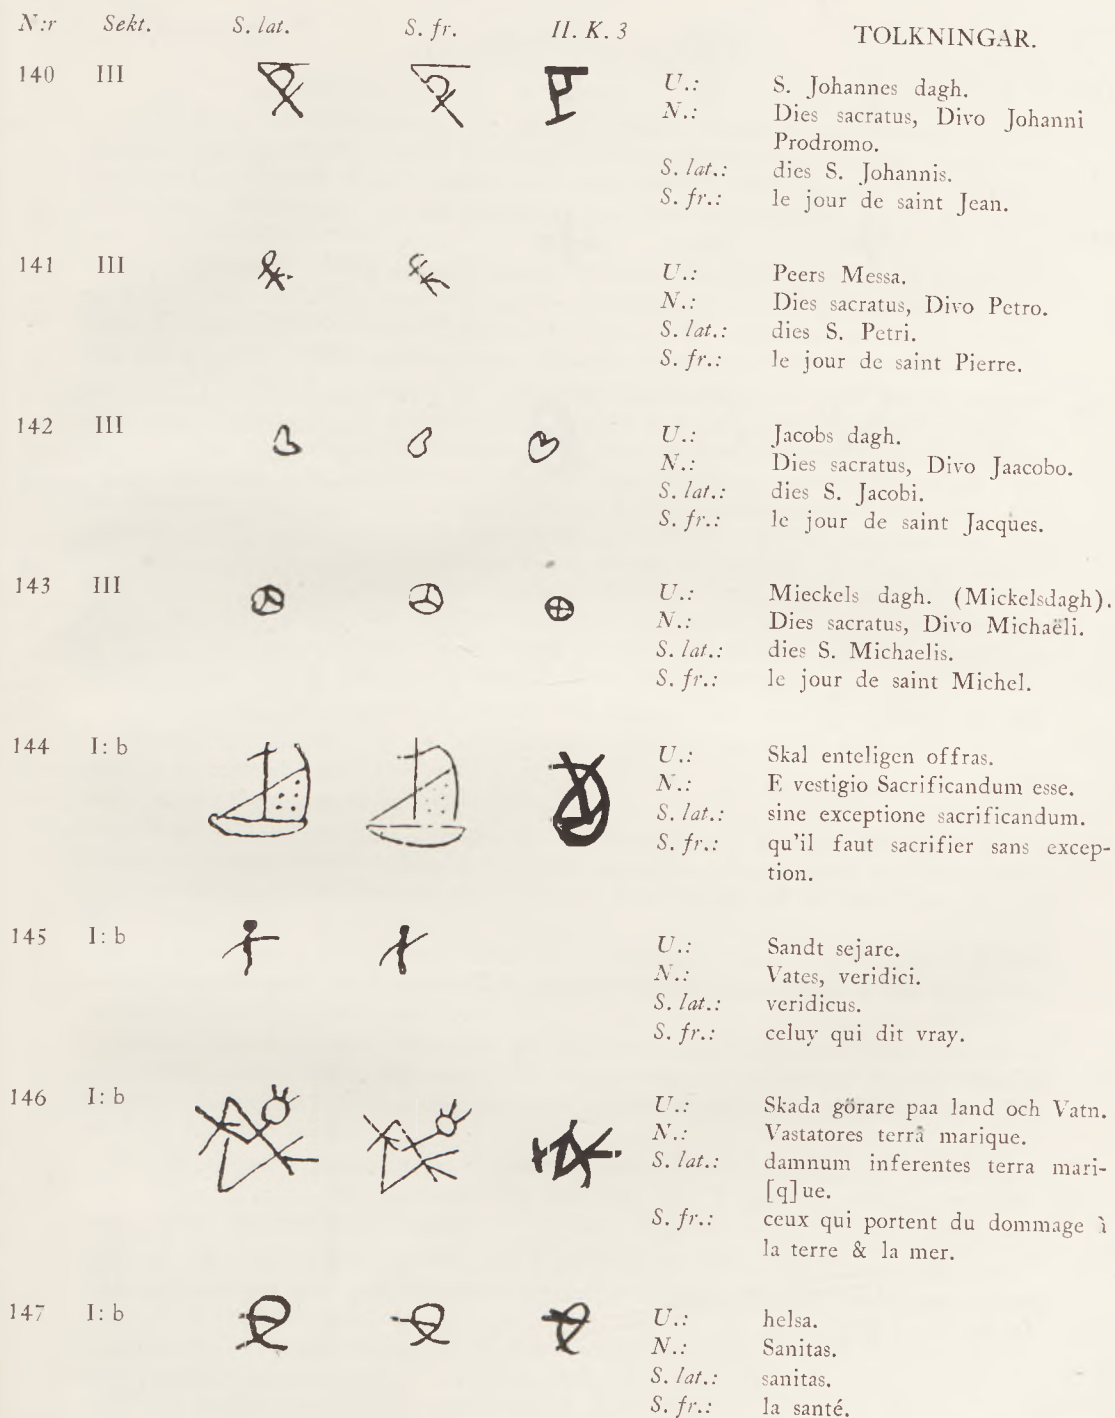 N:r Sekt. S. lat. S. fr. H. K. 3 TOLKNINGAR.
140 III U.: S. Johannes dagh.
N.: Dies sacratus, Divo Johanni
Prodromo.
S. lat.: dies S. Johannis.
S. fr.: le jour de saint Jean.
141 III U.: Peers Messa.
N.: Dies sacratus, Divo Petro.
S. lat.: dies S. Petri.
S. fr.: le jour de saint Pierre.
142 III U.: Jacobs dagh.
N.: Dies sacratus, Divo Jaacobo.
S. lat.: dies S. Jacobi.
S. fr.: le jour de saint Jacques.
143 III U.: Mieckels dagh. (Mickelsdagh).
N.: Dies sacratus, Divo Michaëli.
S. lat.: dies S. Michaelis.
S. fr.: le jour de saint Michel.
144 I: b U.: Skal enteligen offras.
N.: E vestigio Sacrificandum esse.
S. lat.: sine exceptione sacrificandum.
S. fr.: qu'il faut sacrifier sans excep-
tion.
145 I: b U.: Sandt sejare.
N.: Vates, veridici.
S. lat.: veridicus.
S. fr.: celuy qui dit vray.
146 I: b U.: Skada görare paa land och Vatn.
N.: Vastatores terrâ marique.
S. lat.: damnum inferentes terra mari-
[q]ue.
S. fr.: ceux qui portent du dommage à
la terre & la mer.
147 I: b U.: helsa.
N.: Sanitas.
S. lat.: sanitas.
S. fr.: la santé.